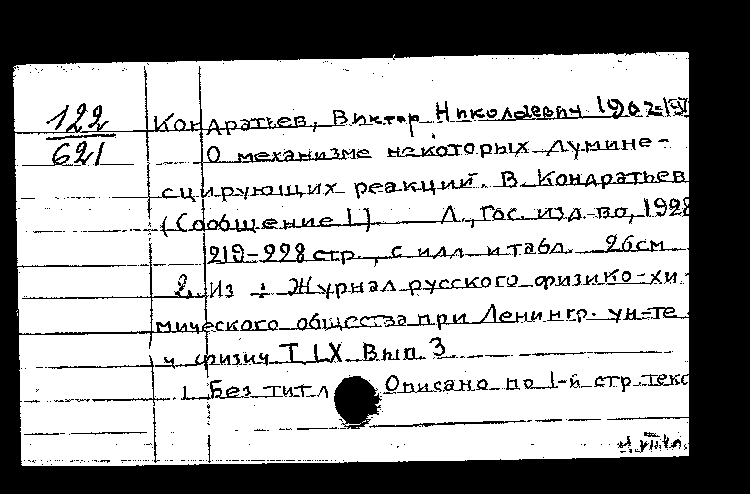 122
621
Кондратьев, Виктор Николаевич 1902-
О механизме некоторых люмине-
сцирующих реакций. В. Кондратьев
(Сообщение 1). Л., Гос. изд-во, 1928
219-228 стр., с илл. и табл. 26см
2. Из: Журнал русского физико-хи-
мического общества при Ленингр. ун-те
ч. физич Т. LX Вып. 3
1. Без титл Описано по 1-й стр. текс